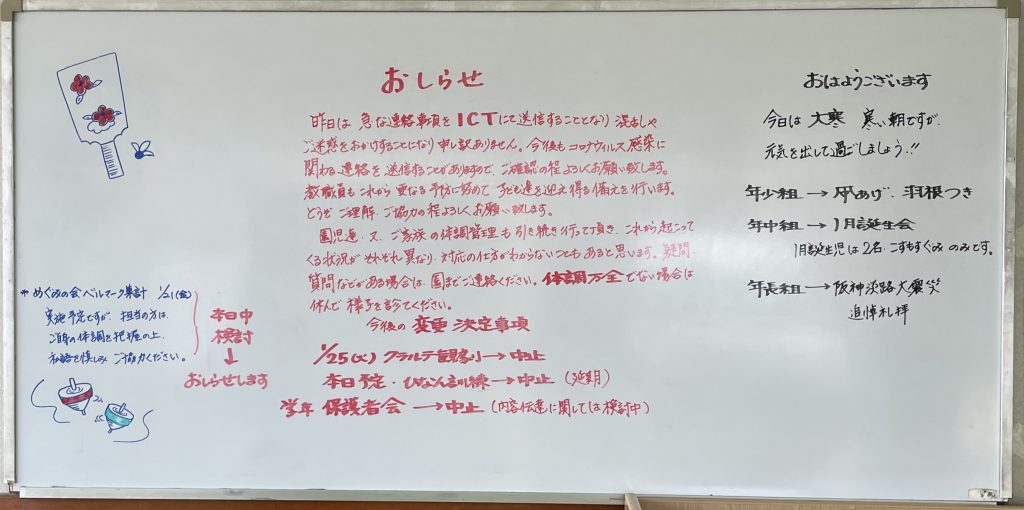 おしらせ
昨日は 急な連絡事項を ICTにて送信することとなり 混乱しや
ご迷惑をおかけすることになり 申し訳ありません。今後も コロナウィルス 感染に
関わる 連絡を 送信することがありますので、ご確認の程 よろしくお願い致します。
教職員も これから 更なる 予防に努めて 子ども達を迎え得る 備えを行います。
どうぞ ご理解・ご協力の程 よろしくお願い致します。
園児達・又、ご家族の体調管理も 引き続き 行って頂き、これから起こって
くる状況が それぞれ異なり、対応の仕方がわからないことも あると思います。疑問
質問などがある場合は、園までご連絡ください。体調万全でない場合は
休んで 様子を診てください。
今後の 変更 決定事項
1/25(火) クラルテ観劇 → 中止
本日予定・ひなん訓練 → 中止 (延期)
学年 保護者会 → 中止 (内容伝達に関しては検討中)
* めぐみの会 ベルマーク集計 1/21(金)
実施予定ですが 担当の方は、
ご自身の体調を把握の上、
私語を慎しみ ご協力ください。
本日中
検討
↓
おしらせします
おはようございます
今日は 大寒 寒い朝ですが、
元気を出して過ごしましょう!!
年少組 → 凧あげ・羽根つき
年中組 → 1月誕生会
1月誕生児は2名・こすもすぐみ のみです。
年長組 → 阪神淡路大震災
追悼礼拝